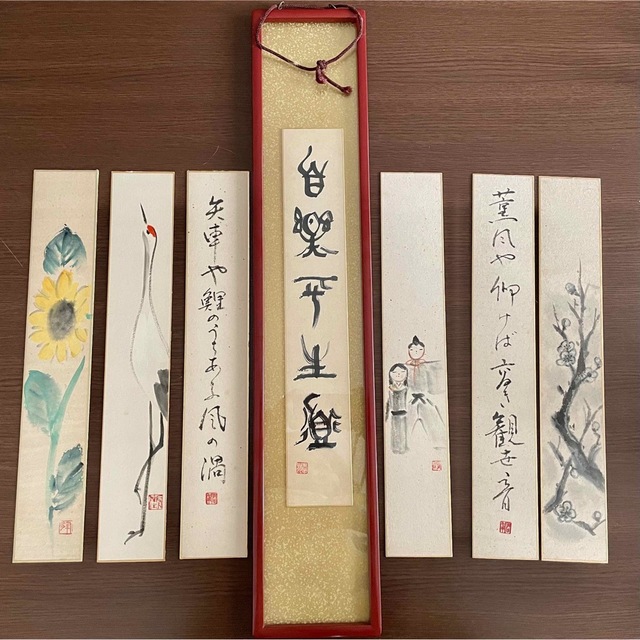 矢車や鯉のうらあふ風の渦
自樂平生道
薫風や仰げば高き観世音